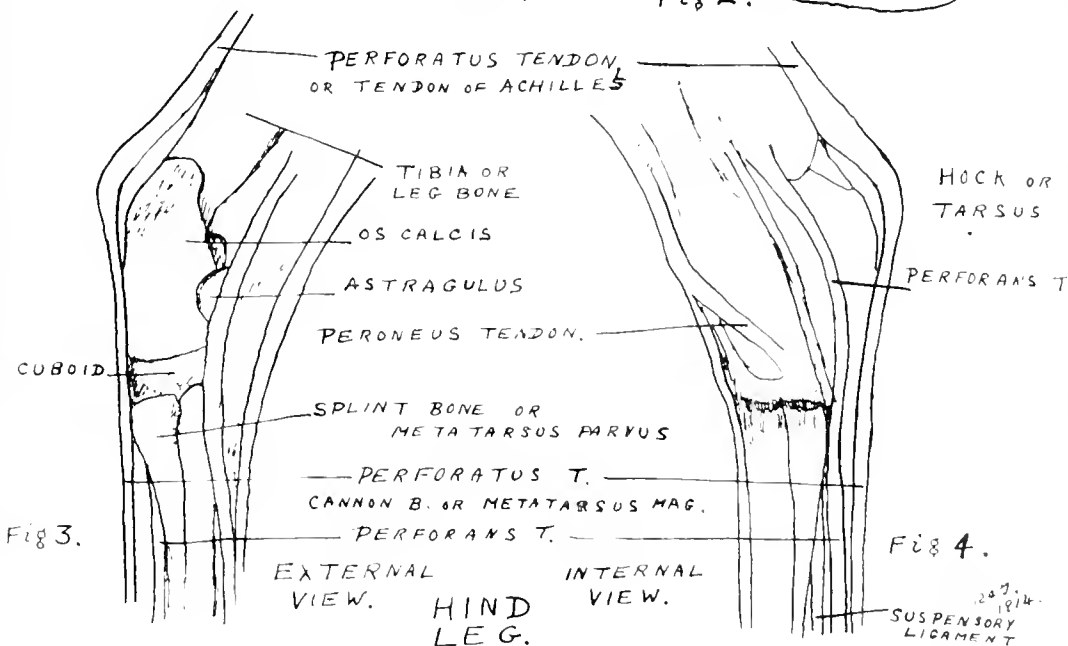 Fig 2.
PERFORATUS TENDON,
OR TENDON OF ACHILLES
TIBIA OR
LEG BONE
HOCK OR
TARSUS
OS CALCIS
PERFORANS T
ASTRAGULUS
PERONEUS TENDON.
CUBOID
SPLINT BONE OR
METATARSUS PARVUS
PERFORATUS T.
CANNON B. OR METATARSUS MAG.
PERFORANS T.
Fig 3.
Fig 4.
EXTERNAL
VIEW.
INTERNAL
VIEW.
HIND
LEG.
1914.
SUSPENSORY
LIGAMENT